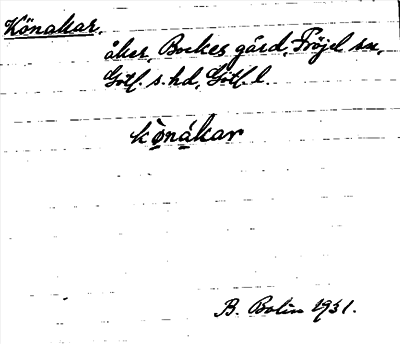 Könakar,
åker, Bockes gård, Fröjel sn,
Gotl. s. hd, Gotl. l.
kǫ̀nákar
B. Bolin 1931.